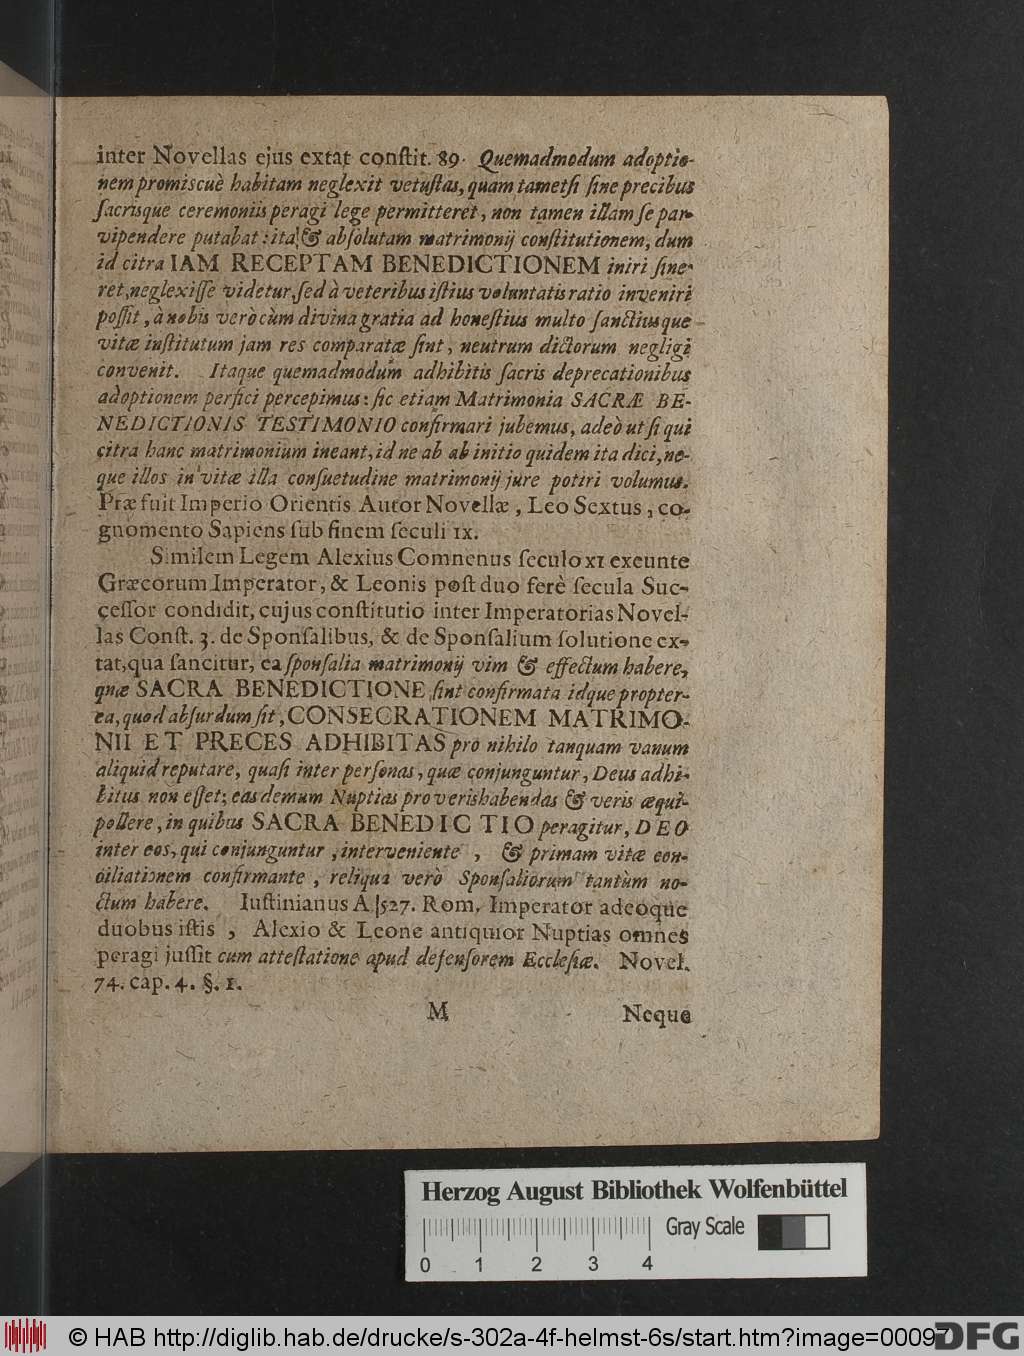 inter Novellas ejus extat conſtit. 89. Quemadmodum adoptio-
nem promiscuè habitam neglexit vetuſtas, quam tametſi ſine precibus
ſacrisque ceremoniis peragi lege permitteret, non tamen illam ſe par-
vipendere putabat: ita & abſolutam matrimonij conſtitutionem, dum
id citra IAM RECEPTAM BENEDICTIONEM iniri ſine-
ret, neglexiſſe videtur, ſed à veteribus iſtius voluntatis ratio inveniri
poſſit, à nobis verò cùm divina gratia ad honeſtius multo ſanctiusque
vitæ inſtitutum jam res comparatæ ſint, neutrum dictorum negligi
convenit. Itaque quemadmodum adhibitis ſacris deprecationibus
adoptionem perfici percepimus: ſic etiam Matrimonia SACRÆ BE-
NEDICTIONIS TESTIMONIO confirmari jubemus, adeò ut ſi qui
citra hanc matrimonium ineant, id ne ab ab initio quidem ita dici, ne-
que illos in vitæ illa conſuetudine matrimonij jure potiri volumus.
Præfuit Imperio Orientis Autor Novellæ, Leo Sextus, co-
gnomento Sapiens ſub finem ſeculi IX.
Similem Legem Alexius Comnenus ſeculo XI exeunte
Græcorum Imperator, & Leonis poſt duo ferè ſecula Suc-
ceſſor condidit, cujus conſtitutio inter Imperatorias Novel-
las Conſt. 3. de Sponſalibus, & de Sponſalium ſolutione ex-
tat, qua ſancitur, ea ſponſalia matrimonij vim & effectum habere,
quæ SACRA BENEDICTIONE ſint confirmata idque propter-
ea, quod abſurdum ſit, CONSECRATIONEM MATRIMO-
NII ET PRECES ADHIBITAS pro nihilo tanquam vanum
aliquid reputare, quaſi inter perſonas, quæ conjunguntur, Deus adhi-
bitus non eſſet; eas demum Nuptias pro veris habendas & veris æqui-
pollere, in quibus SACRA BENEDICTIO peragitur, DEO
inter eos, qui conjunguntur, interveniente, & primam vitæ con-
ciliationem confirmante, reliqua verò Sponſaliorum tantùm no-
ctum habere. Iuſtinianus A. 527. Rom. Imperator adeoque
duobus iſtis, Alexio & Leone antiquior Nuptias omnes
peragi juſſit cum atteſtatione apud defenſorem Eccleſiæ. Novel.
74. cap. 4. §. 1.
M Neque
Herzog August Bibliothek Wolfenbüttel
Gray Scale
0 1 2 3 4
© HAB http://diglib.hab.de/drucke/s-302a-4f-helmst-6s/start.htm?image=00097
DFG